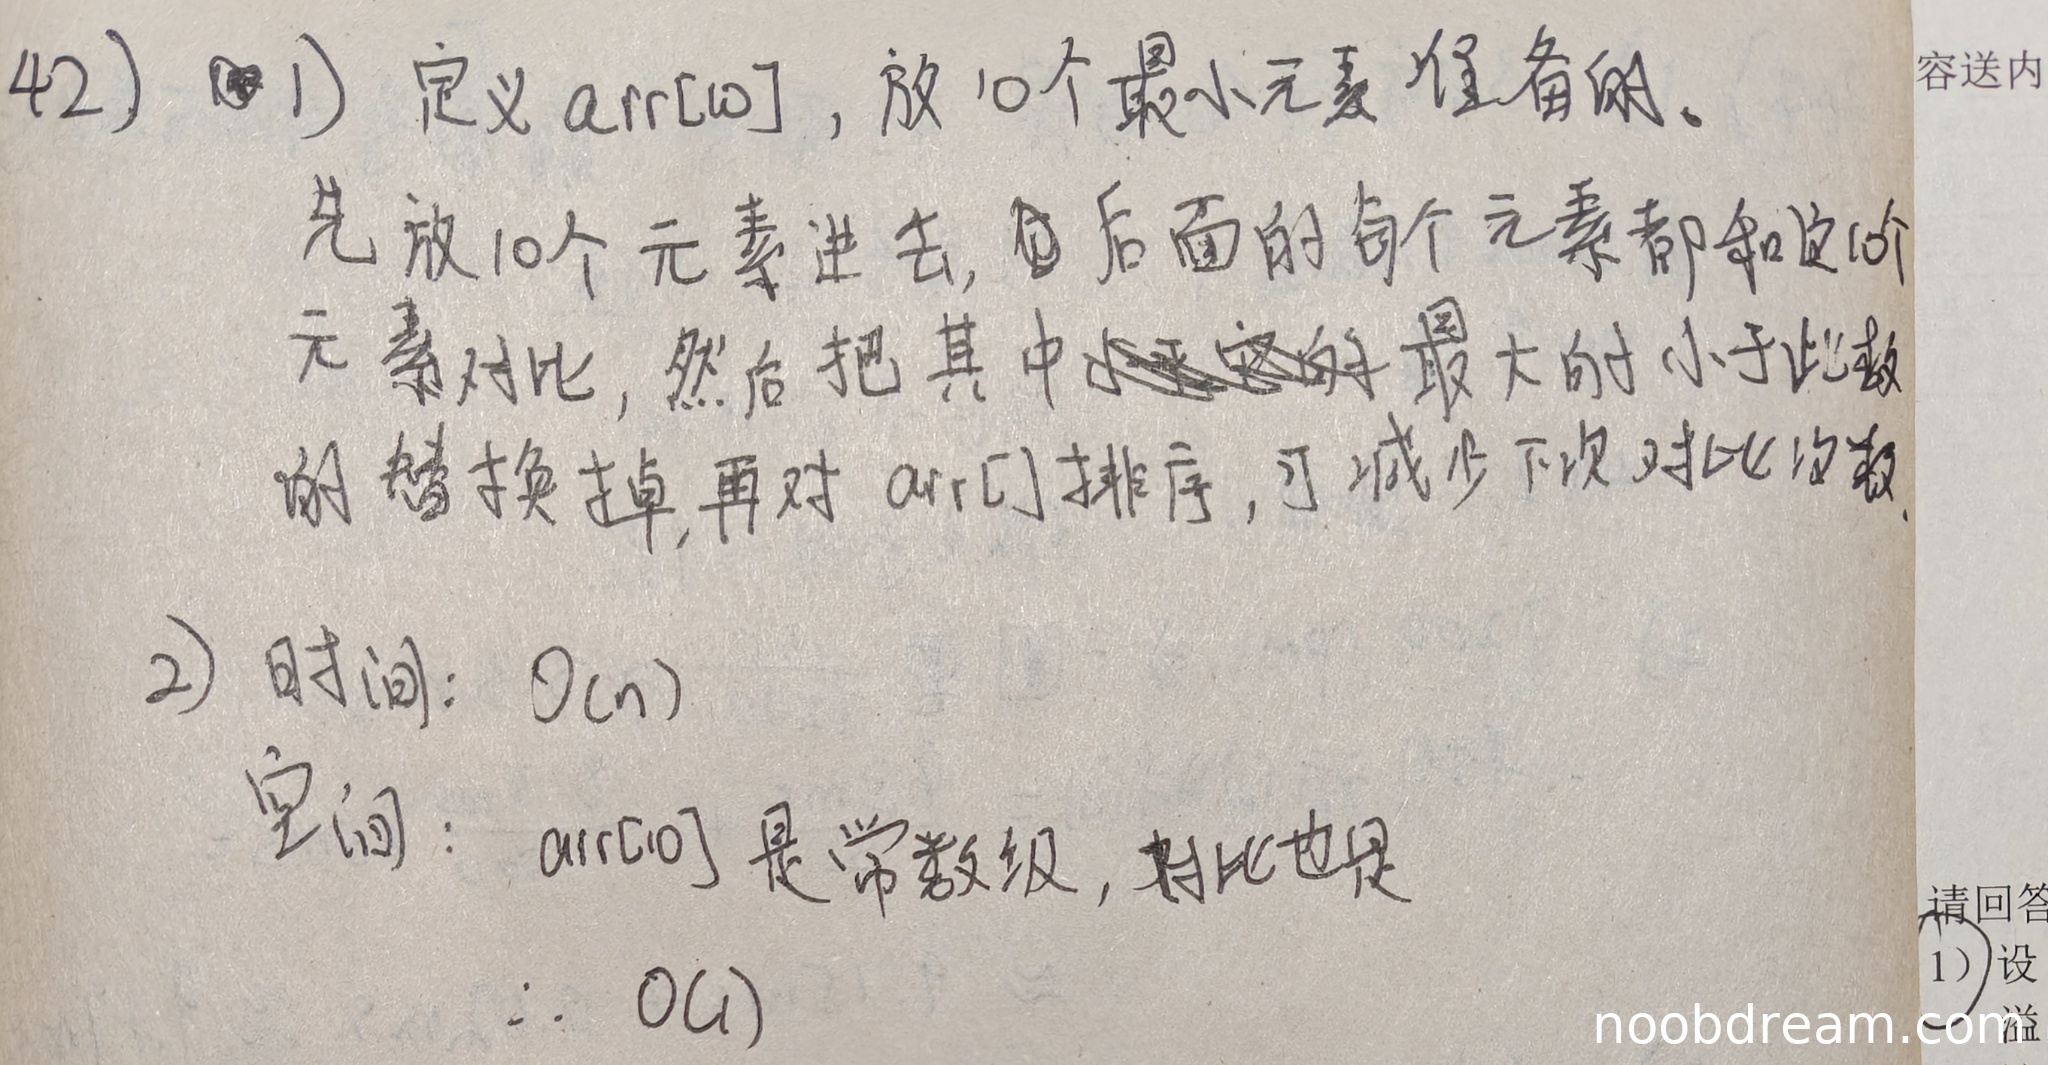 42) 1) 定义 arr[10],放10个最小元素准备的。
先放10个元素进去,后面的每个元素都和这10个
元素对比,然后把其中最大的小于此数
的替换掉,再对 arr[]排序,可减少下次对比次数.
2) 时间: O(n)
空间: arr[10]是常数级,对比也是
∴ O(1)
容送内
请回答
1) 设
溢
noobdream.com